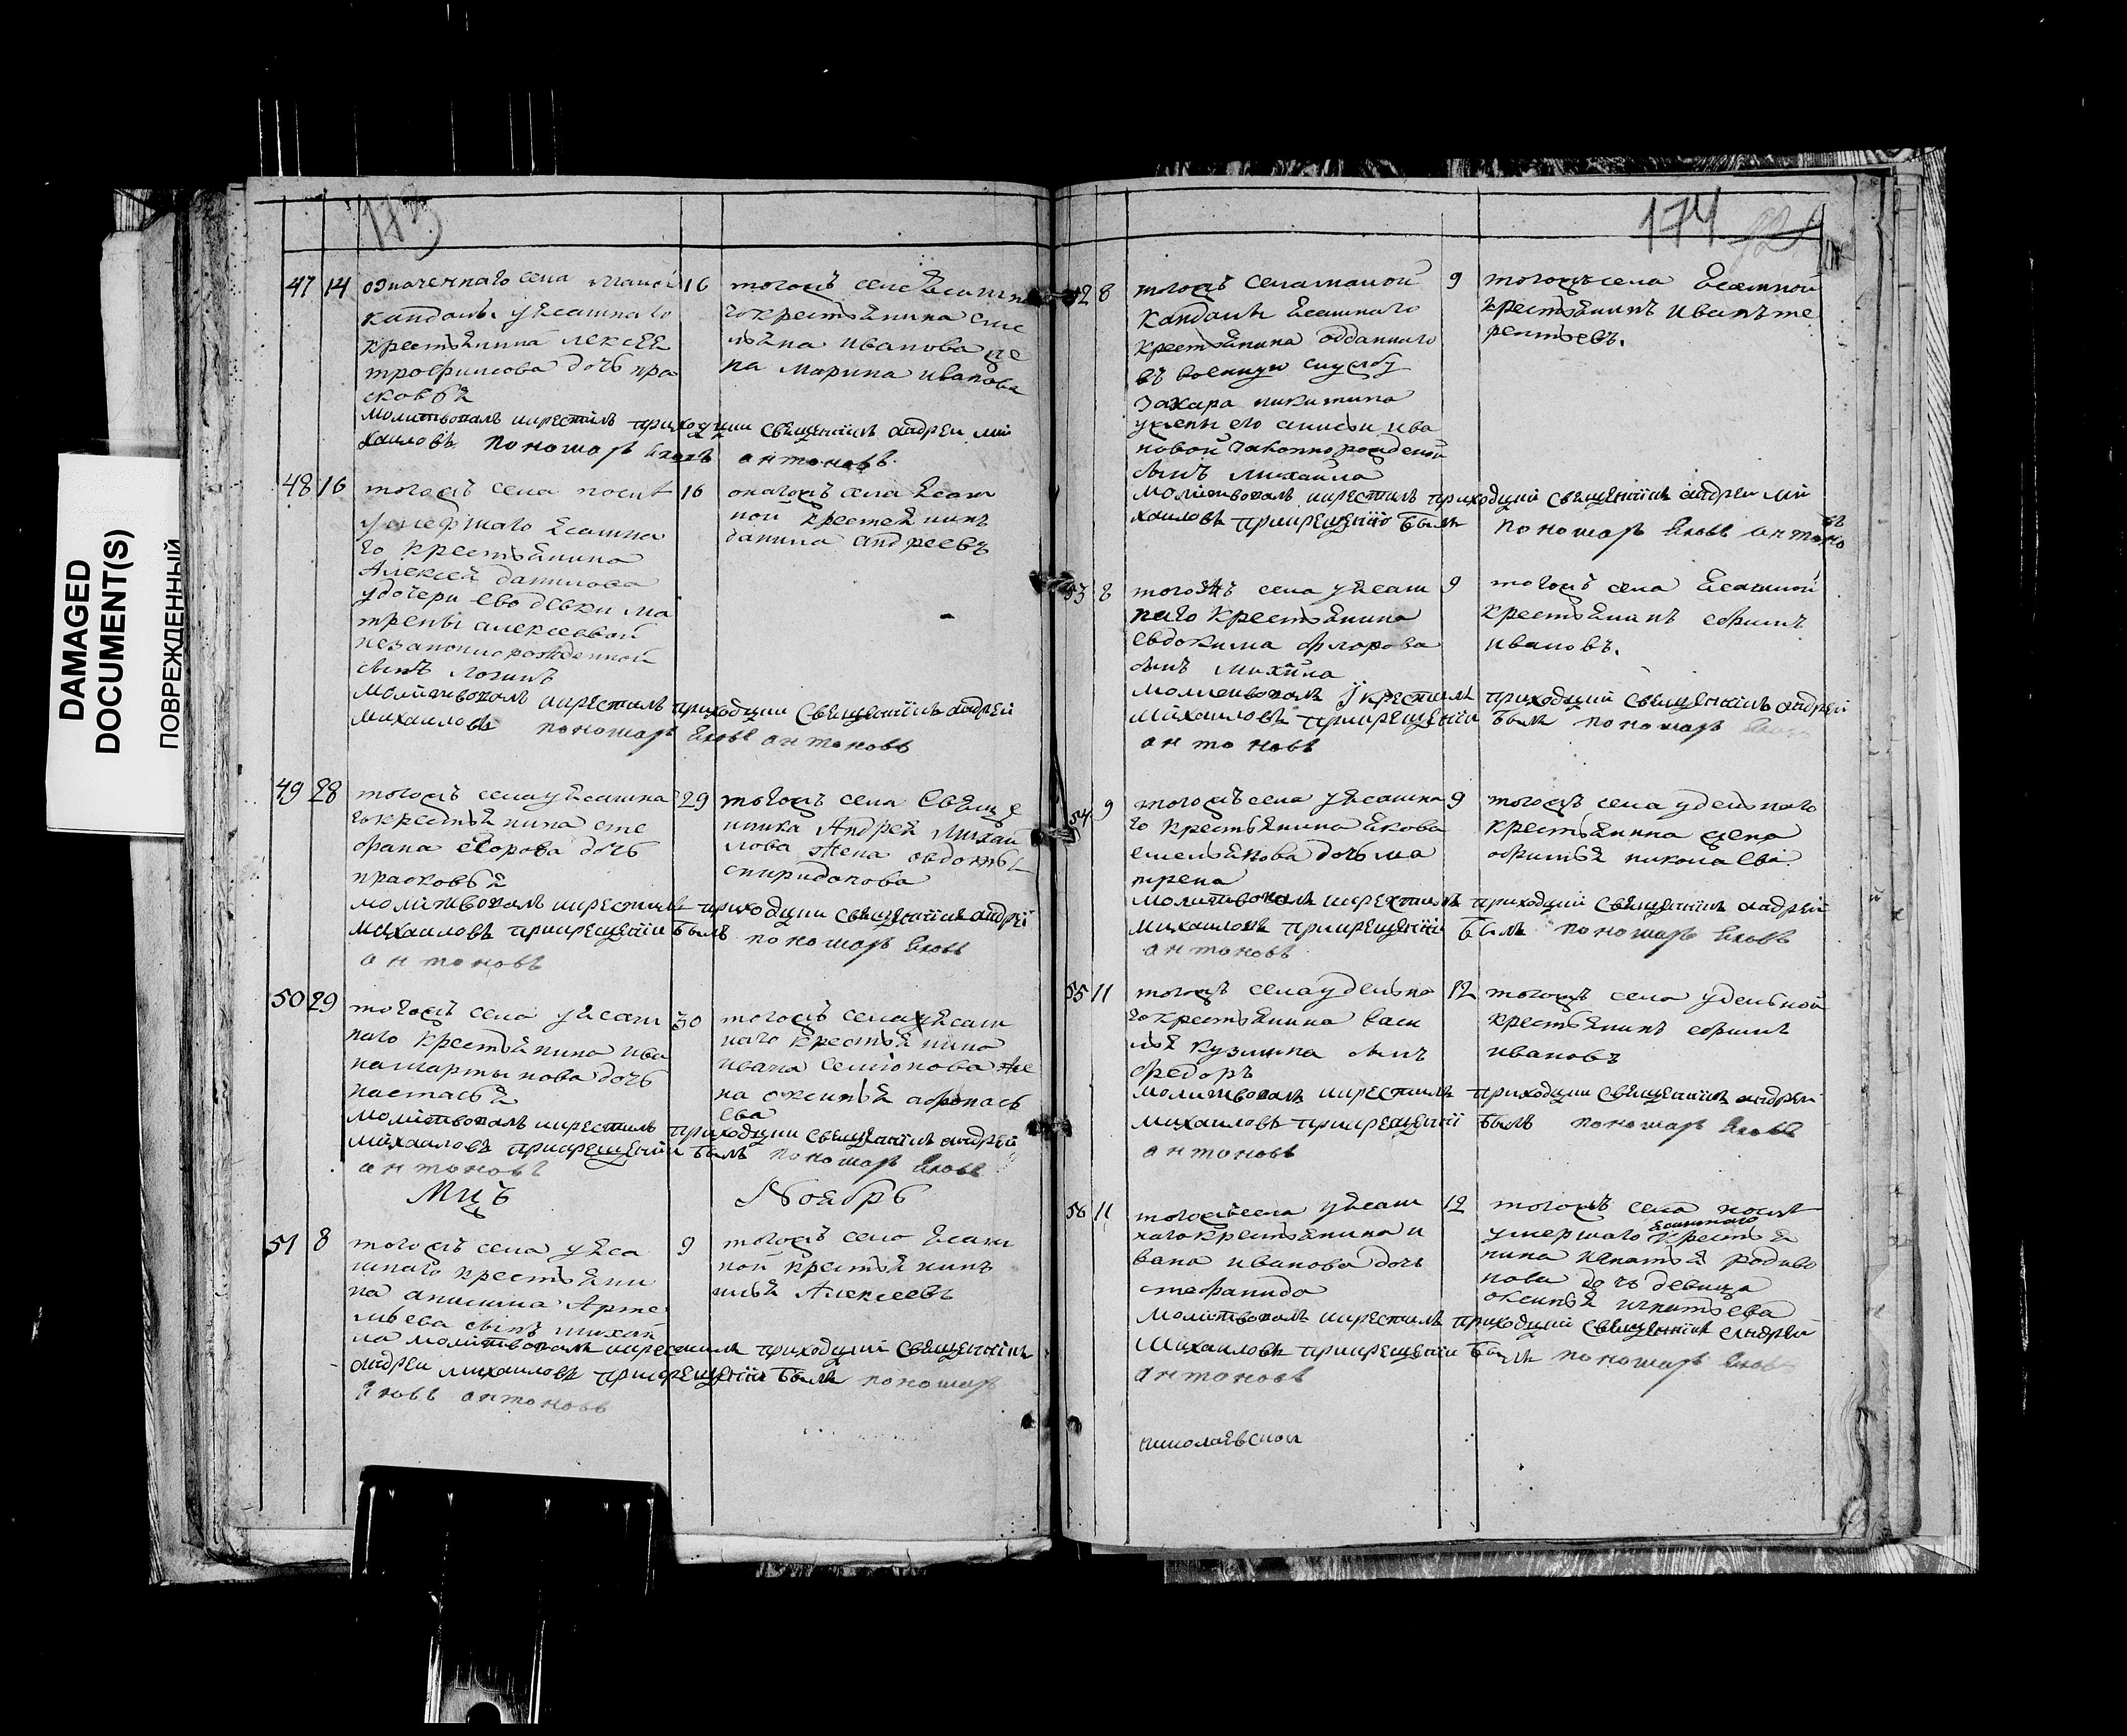 DAMAGED
DOCUMENT(S)
ПОВРЕЖДЕННЫЙ
173
47 14 означеннаго села малой
кандалы уясашнаго
крестьянина алексея
трофимова дочь пра
сковья
16 тогожъ села ясашна
го крестьянина еме
льяна иванова же
на марина иванова
молитвовалъ икрестилъ приходции священникъ андреи ми
хаиловъ пономарь яковъ антоновъ
48 16 тогожъ села после
умершаго ясашна
го крестьянина
Алексея данилова
удочери ево девки ма
трены алексеевой
незаконнорожденной
сынъ логинъ
16 онагожъ села ясаш
ной крестьянинъ
данила андреевъ
молитвовалъ икрестилъ приходции священникъ андрей
михаиловъ пономарь яковъ антоновъ
49 28 тогожъ села уясашна
го крестьянина сте
фана егорова дочь
прасковья
29 тогожъ села Свяще
нника Андрея Михаи
лова жена авдотья
спиридонова
молитвовалъ икрестилъ приходции священникъ андрей
михаиловъ прикрещении былъ пономарь яковъ
антоновъ
50 29 тогожъ села уясаш
наго крестьянина ива
на мартынова дочь
настасья
30 тогожъ села уясаш
наго крестьянина
ивана семионова же
на оксинья афонась
ева
молитвовалъ икрестилъ приходции священникъ андрей
михаиловъ прикрещении былъ пономарь яковъ
антоновъ
Мцъ Ноябрь
51 8 тогожъ села уяса
шнаго крестьяни
на анисима Арте
мьева сынъ михай
ла
9 тогожъ села ясаш
ной крестьянинъ
илья Алексеевъ
молитвовалъ икрестилъ приходции священникъ
андреи михаиловъ прикрещении былъ пономарь
яковъ антоновъ
174
52 8 тогожъ села малой
кандалы ясашнаго
крестьянина отданнаго
въ военную службу
захара никитина
ужены его анисьи ива
новой законнорожденой
сынъ михайла
9 тогожъ села ясашной
крестьянинъ иванъ те
рентьевъ.
молитвовалъ икрестилъ приходции священникъ андреи ми
хаиловъ прикрещении былъ пономарь яковъ антоно
въ
53 8 тогожъ села уясаш
наго крестьянина
евдокима флорова
сынъ михайла
9 тогожъ села ясашной
крестьянинъ ефимъ
ивановъ.
молитвовалъ икрестилъ приходции священникъ андрей
михаиловъ прикрещении былъ пономарь яковъ
антоновъ
54 9 тогожъ села уясашна
го крестьянина якова
емельянова дочь ма
трена
9 тогожъ села удельнаго
крестьянина жена
офимья николаева
молитвовалъ икрестилъ приходции священникъ андрей
михаиловъ прикрещении былъ пономарь яковъ
антоновъ
55 11 тогожъ села удельна
го крестьянина васи
лья кузмина сынъ
федоръ
12 тогожъ села удельной
крестьянинъ ефимъ
ивановъ
молитвовалъ икрестилъ приходции священникъ андреи
михаиловъ прикрещении былъ пономарь яковъ
антоновъ
56 11 тогожъ села уясаш
наго крестьянина и
вана иванова дочь
стефанида
12 тогожъ села после
умершаго ясашнаго крестья
нина игнатья родиво
нова дочь девица
оксинья игнатьева
молитвовалъ икрестилъ приходции священникъ андреи
михаиловъ прикрещении былъ пономарь яковъ
антоновъ
николаевской